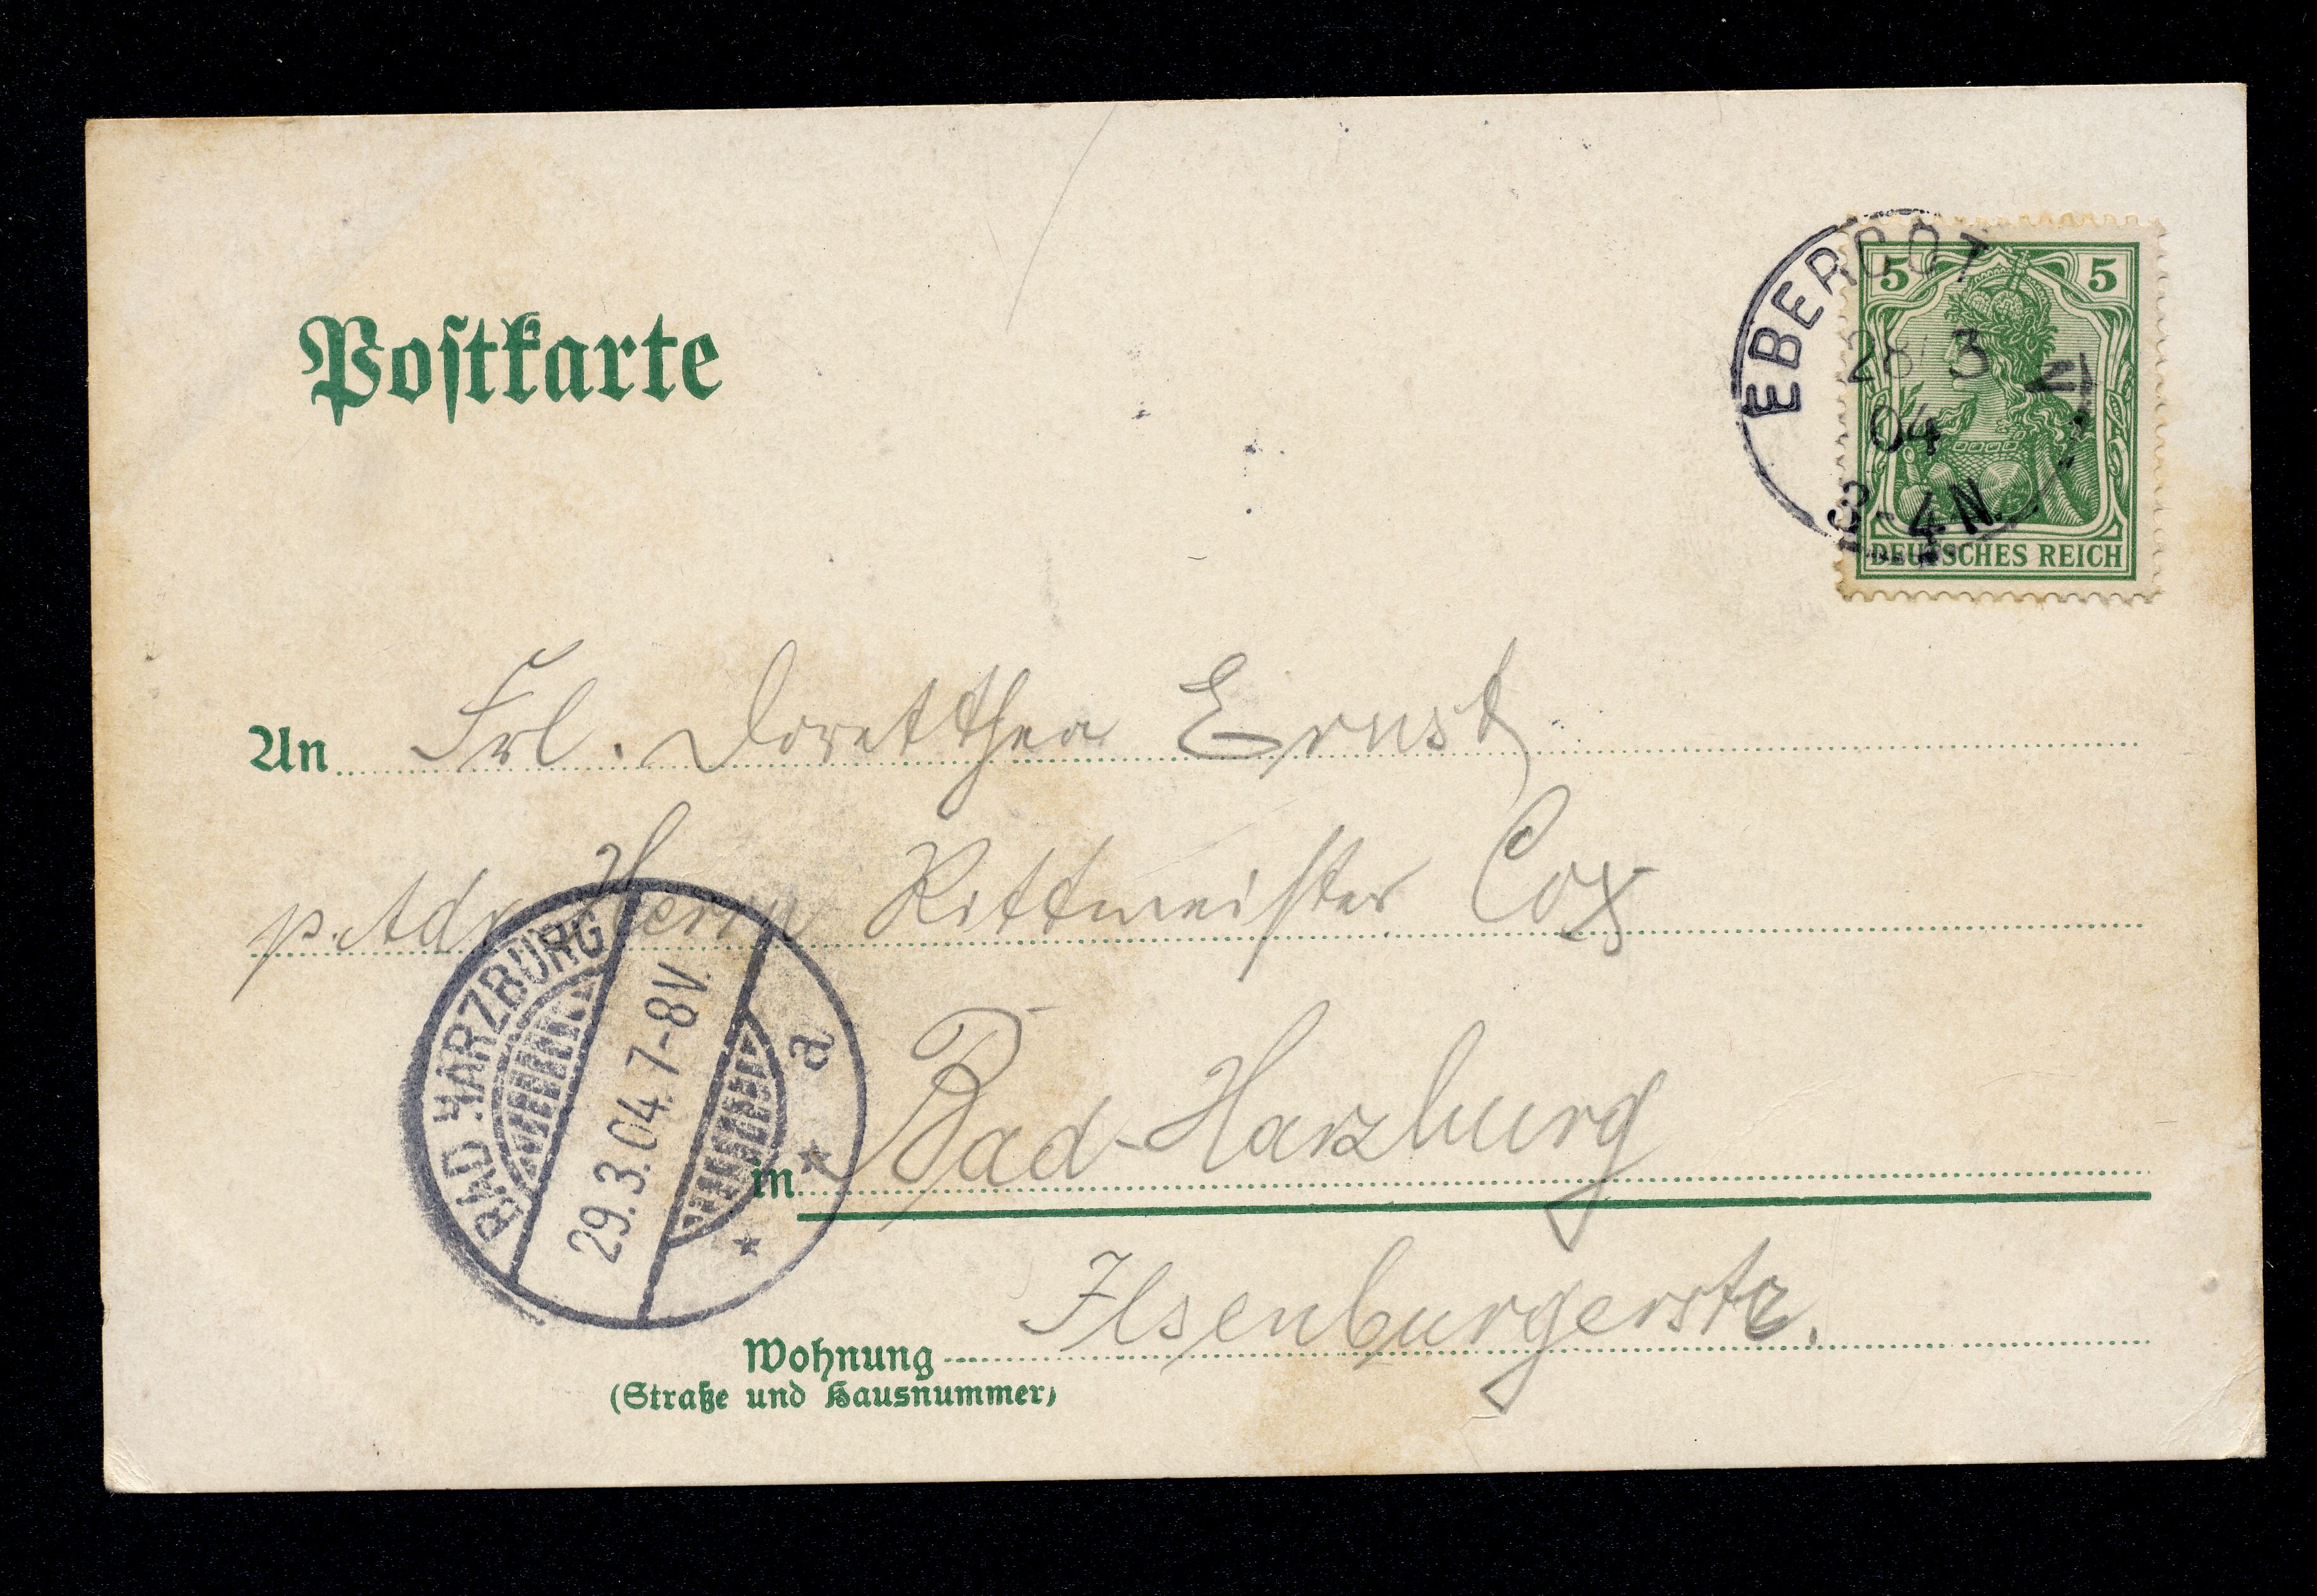 Postkarte
5 5
EBERGÖT
28 3
04
3-4N.
DEUTSCHES REICH
An Frl. Doretthea Ernst
p. Adr. Herrn Rittmeister Cox
BAD HARZBURG
29.3.04. 7-8V.
a
* *
in Bad-Harzburg
Wohnung Ilsenburgerstr.
(Straße und Hausnummer)